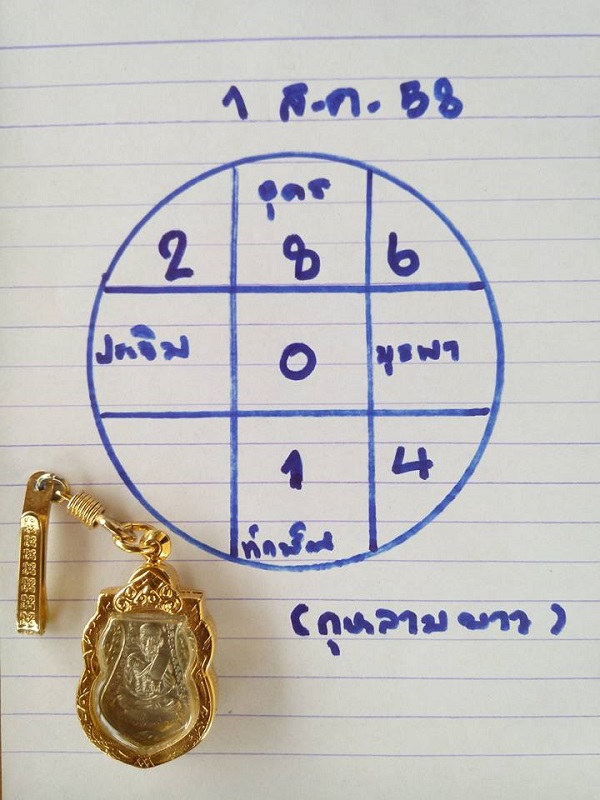 1 ส.ค. 58
อุดร
2 8 6
ปะจิม 0 บูรพา
1 4
ทักษิณ
(กุหลาบขาว)